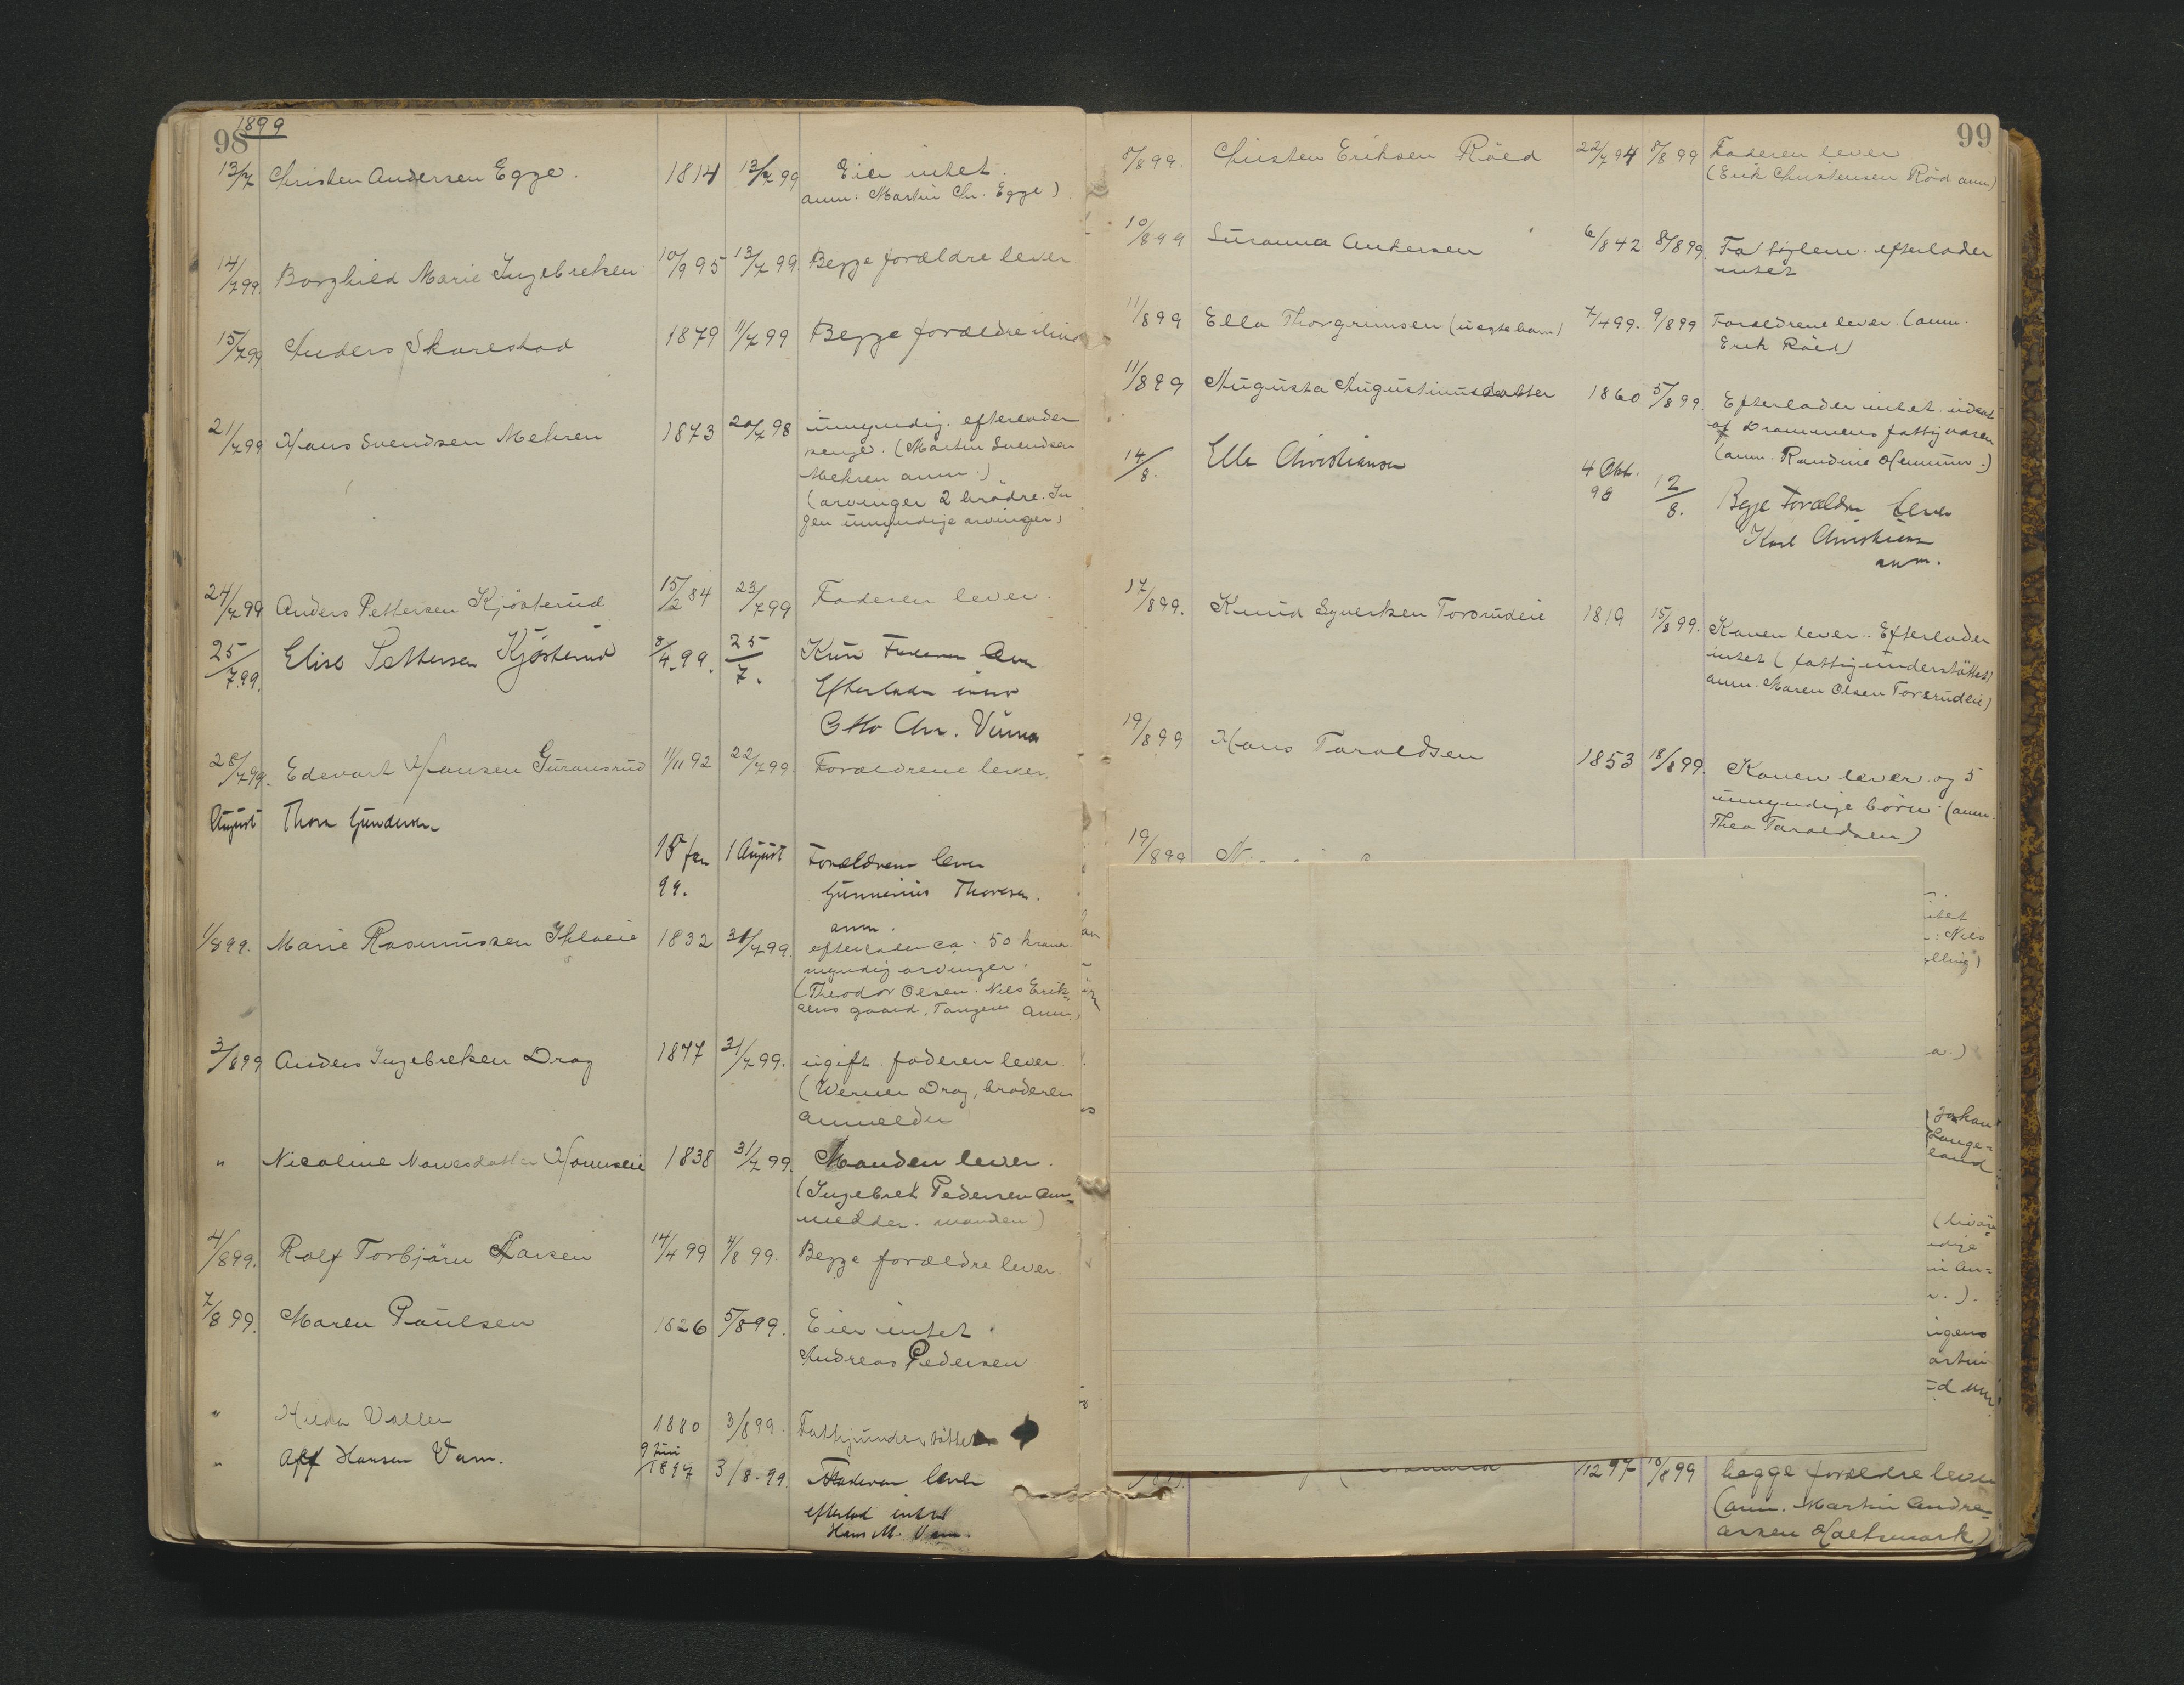 98
1899
13/7 Christen Andersen Egge. 1814 13/7 99 Eier intet.
anm: Martin Chr. Egge)
14/7 99. Borghild Marie Ingebretsen 10/9 95 13/7 99. Begge forældre lever
15/7 99 Anders Skarestad 1879 11/7 99 Begge forældre
21/7 99 Hans Svendsen Mehren 1873 20/7 98 umyndig. efterlader
penge. (Martin Svendsen
Mehren anm.)
(arvinger 2 brødre. In
gen umyndige arvinger)
24/7 99 Anders Pettersen Kjösterud 15/2 84 23/7 99 Faderen lever.
25/7 99. Elise Pettersen Kjösterud 8/4. 99. 25/7. Kun Faderen lever
Efterlader intet
Otto Chr.
28/7 99. Edevart Hansen Guransrud 1/11 92 22/7 99. Forældrene lever.
August Thora Gundersen
15 Jan 1 August Forældrene lever
99. Gunnerius Thoresen.
anm.
1/8 99. Marie Rasmussen 1832 31/7 99. efterlader ca. 50 kroner.
myndig arvinger.
(Theodor Olsen. Nils Erik-
sens gaard, Tangen anm.)
3/8 99 Anders Ingebretsen Drag 1877 31/7 99. ugift. faderen lever.
(Werner Drag, broderen
anmelder
" Nicoline 1838 31/7 99. Manden lever.
(Ingebret Pedersen an-
melder. manden)
4/8 99. Rolf Torbjörn Larsen 14/4 99 4/8 99. Begge forældre lever.
7/8 99. Maren Paulsen 1826 5/8 99. Eier intet.
Andreas Pedersen
" Hilda Vallen 1880 3/8 99. Fattigunderstöttet
" Alf Hansen Vam. 9 Juni 1897 3/8. 99. Faderen lever
efterlod intet
Hans M. Vam.
99
8/8 99. Christen Eriksen Röed 22/7 94 8/8 99 Faderen lever
(Erik Christensen Röd anm)
10/8 99 Susanna Andersen 6/8 42 8/8 99. Fattiglem. efterlader
intet
11/8 99 Ella Thorgrimsen (uægte barn) 7/4 99. 9/8 99 Forældrene lever. (anm.
Erik Röed)
11/8 99 Augusta Augustinusdatter 1860 5/8 99. Efterlader intet.
af Drammens fattigvæsen
(anm. Randine
14/8. Elle Christiansen 4 Okt. 98 12/8. Begge Forældre lever
Karl Christiansen
anm.
17/8 99. Knud Syversen Torsrudeie 1819 15/8 99. Konen lever. Efterlader
intet (fattigunderstöttet)
anm. Maren Olsen Torsrudeie)
19/8 99 Hans Taraldsen 1853 18/8 99. Konen lever. og 5
umyndige börn. (anm.
Thea Taraldsen)
19/8 99 N
: Nils
a.)
Johan
Lange-
land
(
in An-
.).
igens
artin
1297 18/8 99 begge forældre lever
(anm. Martin Andre-
assen Holtsmark)